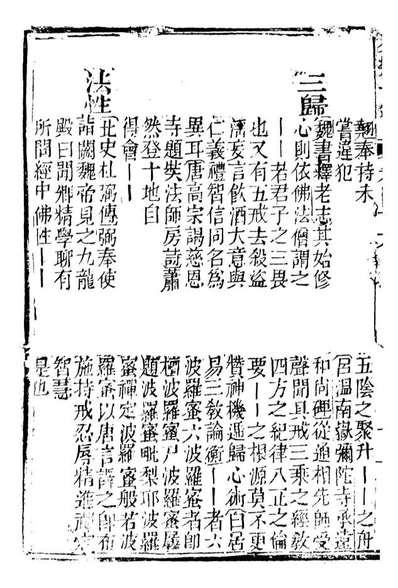 奉持未
嘗違犯
三歸
魏書釋老志其始修
心則依佛法僧謂之
——若君子之三畏
也又有五戒去殺盜
淫妄言飲酒大意與
仁義禮智信同名為
異耳唐高宗謁慈恩
寺題奘法師房詩蕭
然登十地自
得會——
法性
北史杜弼傳弼奉使
詣闕魏帝見之九龍
殿曰聞卿精學聊有
所問經中佛性——
五陰之聚升——之舟
呂溫南嶽彌陀寺承遠
和尚碑從通相先師受
聲聞具戒三乘之經教
四方之紀律八正之倫
要——之根源莫不更
贊神機遞歸心術白居
易三教論衡——者六
波羅蜜六波羅蜜者卽
檀波羅蜜尸波羅蜜羼
題波羅蜜毗梨耶波羅
蜜禪定波羅蜜般若波
羅蜜以唐言譯之卽布
施持戒忍辱精進禪定
智慧
是也